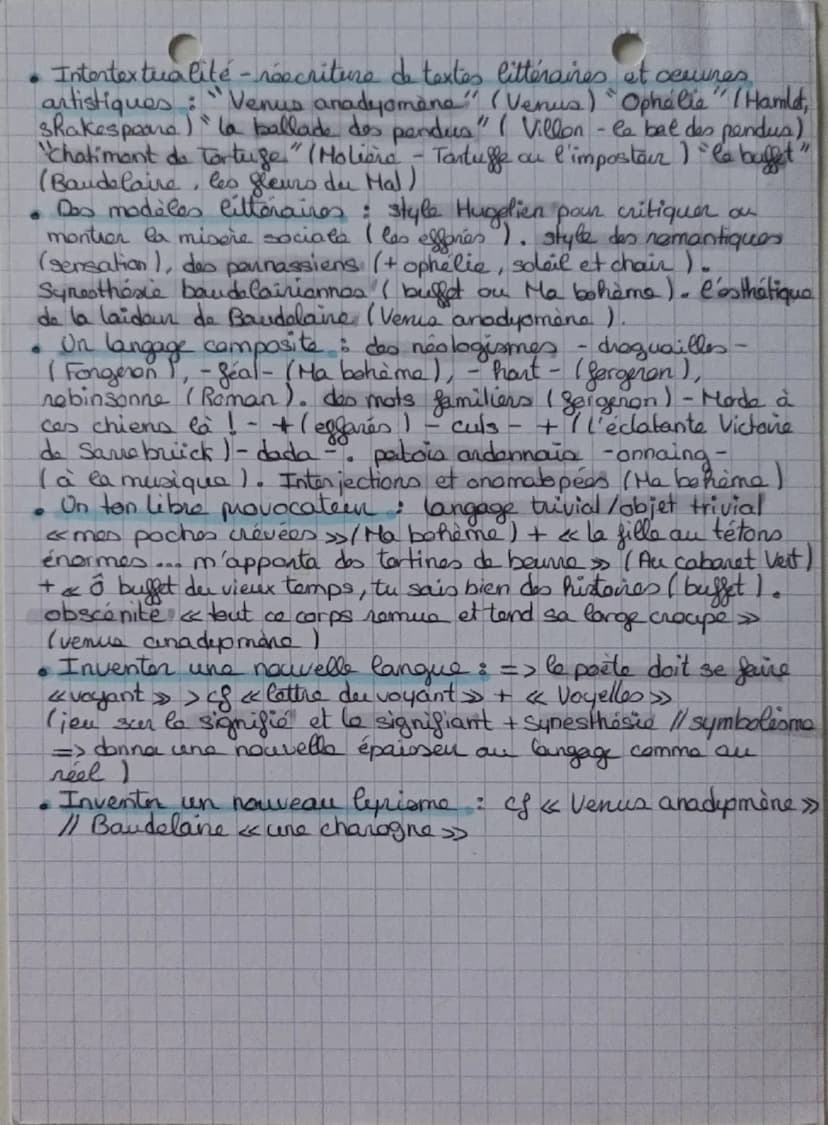 • Intertextualité - réecriture de textes littéraires et oeuvres
artistiques : "Venus anadyomène" (Venus) "Ophélie" (Hamlet,
Shakespeare) "la ballade des pendus" ( Villon - le bal des pendus)
"Chatiment de Tartuge" (Molière - Tartuffe ou l'imposteur ) "le buffet"
(Baudelaire, les fleurs du Mal)
• Des modèles littéraires : style Hugolien pour critiquer ou
montrer la misère sociale ( les effarés ). style des romantiques
(sensation), des parnassiens (+ ophélie, soleil et chair ).
Synesthésie baudelairiennes ( buffet ou Ma bohème). l'esthétique
de la laideur de Baudelaire (Venus anadyomène ).
• Un langage composite : des néologismes - droguailles -
( Forgeron ), - féal - (Ma bohème), - hart - (forgeron),
robinsonne (Roman). des mots familiers (forgeron) - Merde à
ces chiens là ! - + (effarés) - culs - + ( l'éclatante Victoire
de Sarrebrück) - dada -. patois ardennais - onnaing -
( à la musique). Interjections et onomatopées (Ma bohème)
• Un ton libre provocateur : langage trivial / objet trivial
« mes poches crevées » (Ma bohème) + « la fille au tétons
énormes ... m'apporta des tartines de beurre » (Au cabaret Vert)
+ « ô buffet du vieux temps, tu sais bien des histoires (buffet ).
obscénité « tout ce corps remue et tend sa large croupe »
(venus anadyomène )
• Inventer une nouvelle langue : => le poète doit se faire
« voyant » > cf « lettre du voyant » + « Voyelles »
(jeu sur le signifié et le signifiant + synesthésie // symbolisme
=> donne une nouvelle épaisseu au langage comme au
réel )
• Inventer un nouveau lyrisme : cf « Venus anadyomène »
// Baudelaire « une charogne »